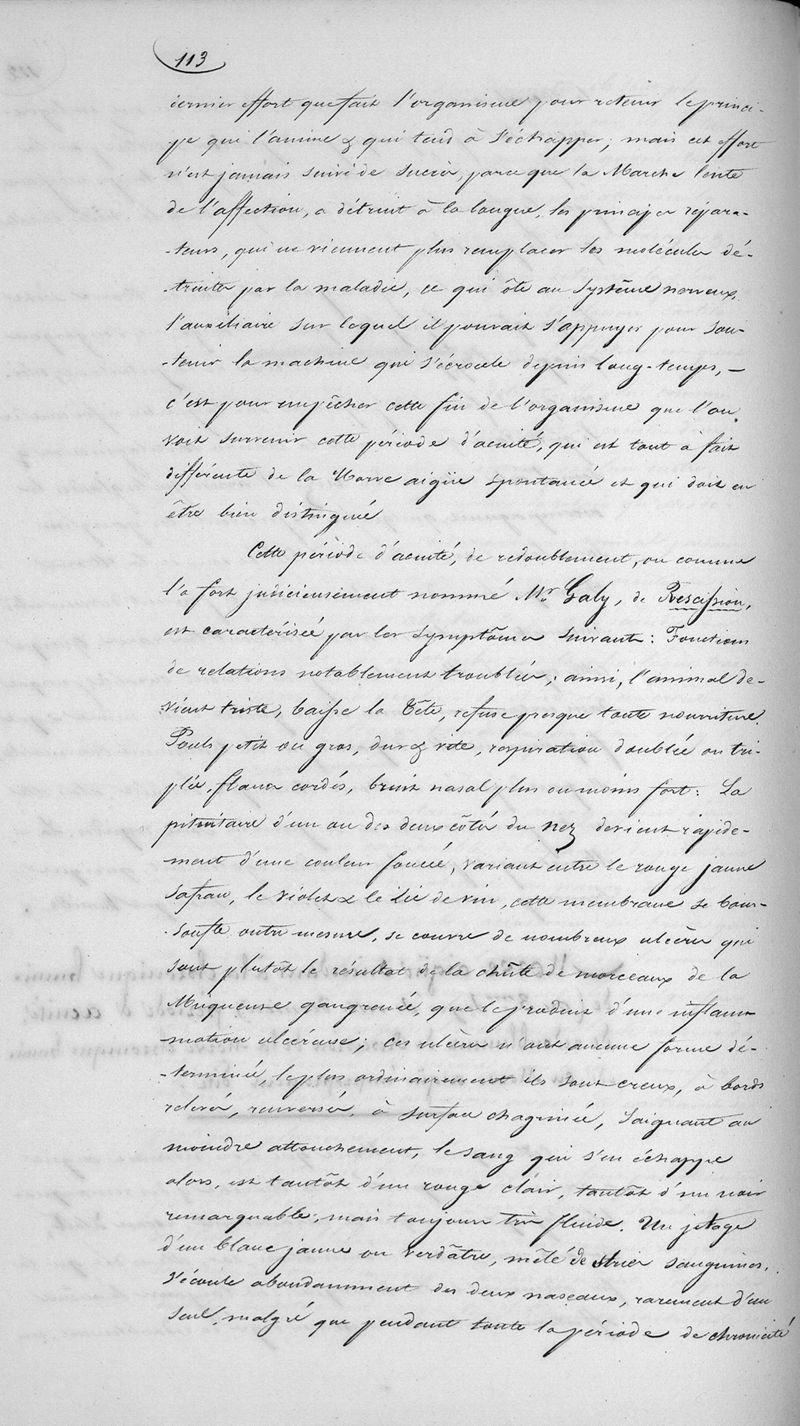 113
dernier effort que fait l'organisme pour retenir le princi-
pe qui l'anime & qui tend à s'échapper; mais cet effort
n'est jamais suivi de succès, parce que la Marche lente
de l'affection, a détruit à la longue, les principes répara-
-teurs, qui ne viennent plus remplacer les molécules dé-
-truites par la maladie, ce qui ôte au système nerveux
l'auxiliaire sur lequel il pouvait s'appuyer pour sou-
-tenir la machine qui s'écroule depuis long-temps, —
c'est pour empêcher cette fin de l'organisme que l'on
voit survenir cette période d'acuité, qui est tout à fait
différente de la Morve aigüe spontanée et qui doit en
être bien distingué
Cette période d'acuité, de redoublement, ou comme
l'a fort judicieusement nommé Mr Galy, de
est caractérisée par les symptômes suivants: Fonctions
de relations notablement troublées; ainsi, l'animal de-
vient triste, baisse la tête, refuse presque toute nourriture.
Pouls petit ou gros, dur & vite, respiration doublée ou tri-
plée, flancs cordés, bruit nasal plus ou moins fort: La
pituitaire d'un ou des deux côtés du nez devient rapide-
ment d'une couleur foncée, variant entre le rouge jaune
safran, le violet & le lie de vin, cette membrane se bour-
-soufle outre mesure, se couvre de nombreux ulcères qui
sont plutôt le résultat de la chûte de morceaux de la
Muqueuse gangrenée, que le produit d'une inflam-
-mation ulcéreuse; ces ulcères n'ont aucune forme dé-
-terminée, le plus ordinairement ils sont creux, à bords
relevés, renversés, à surface chagrinée, saignant au
moindre attouchement, le sang qui s'en échappe
alors, est tantôt d'un rouge clair, tantôt d'un noir
remarquable, mais toujours très fluide. Un jetage
d'un blanc jaune ou verdâtre, mêlé de stries sanguines,
s'écoule abondamment des deux naseaux, rarement d'un
seul, malgré que pendant toute la période de chronicité